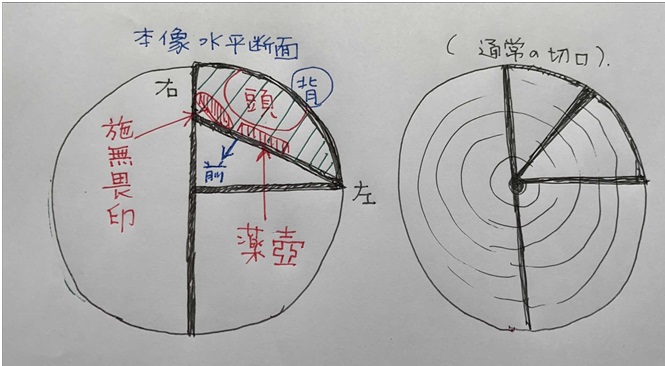 本像水平断面
(通常の切口).
右
背
頭
施無畏印
前
左
薬壺